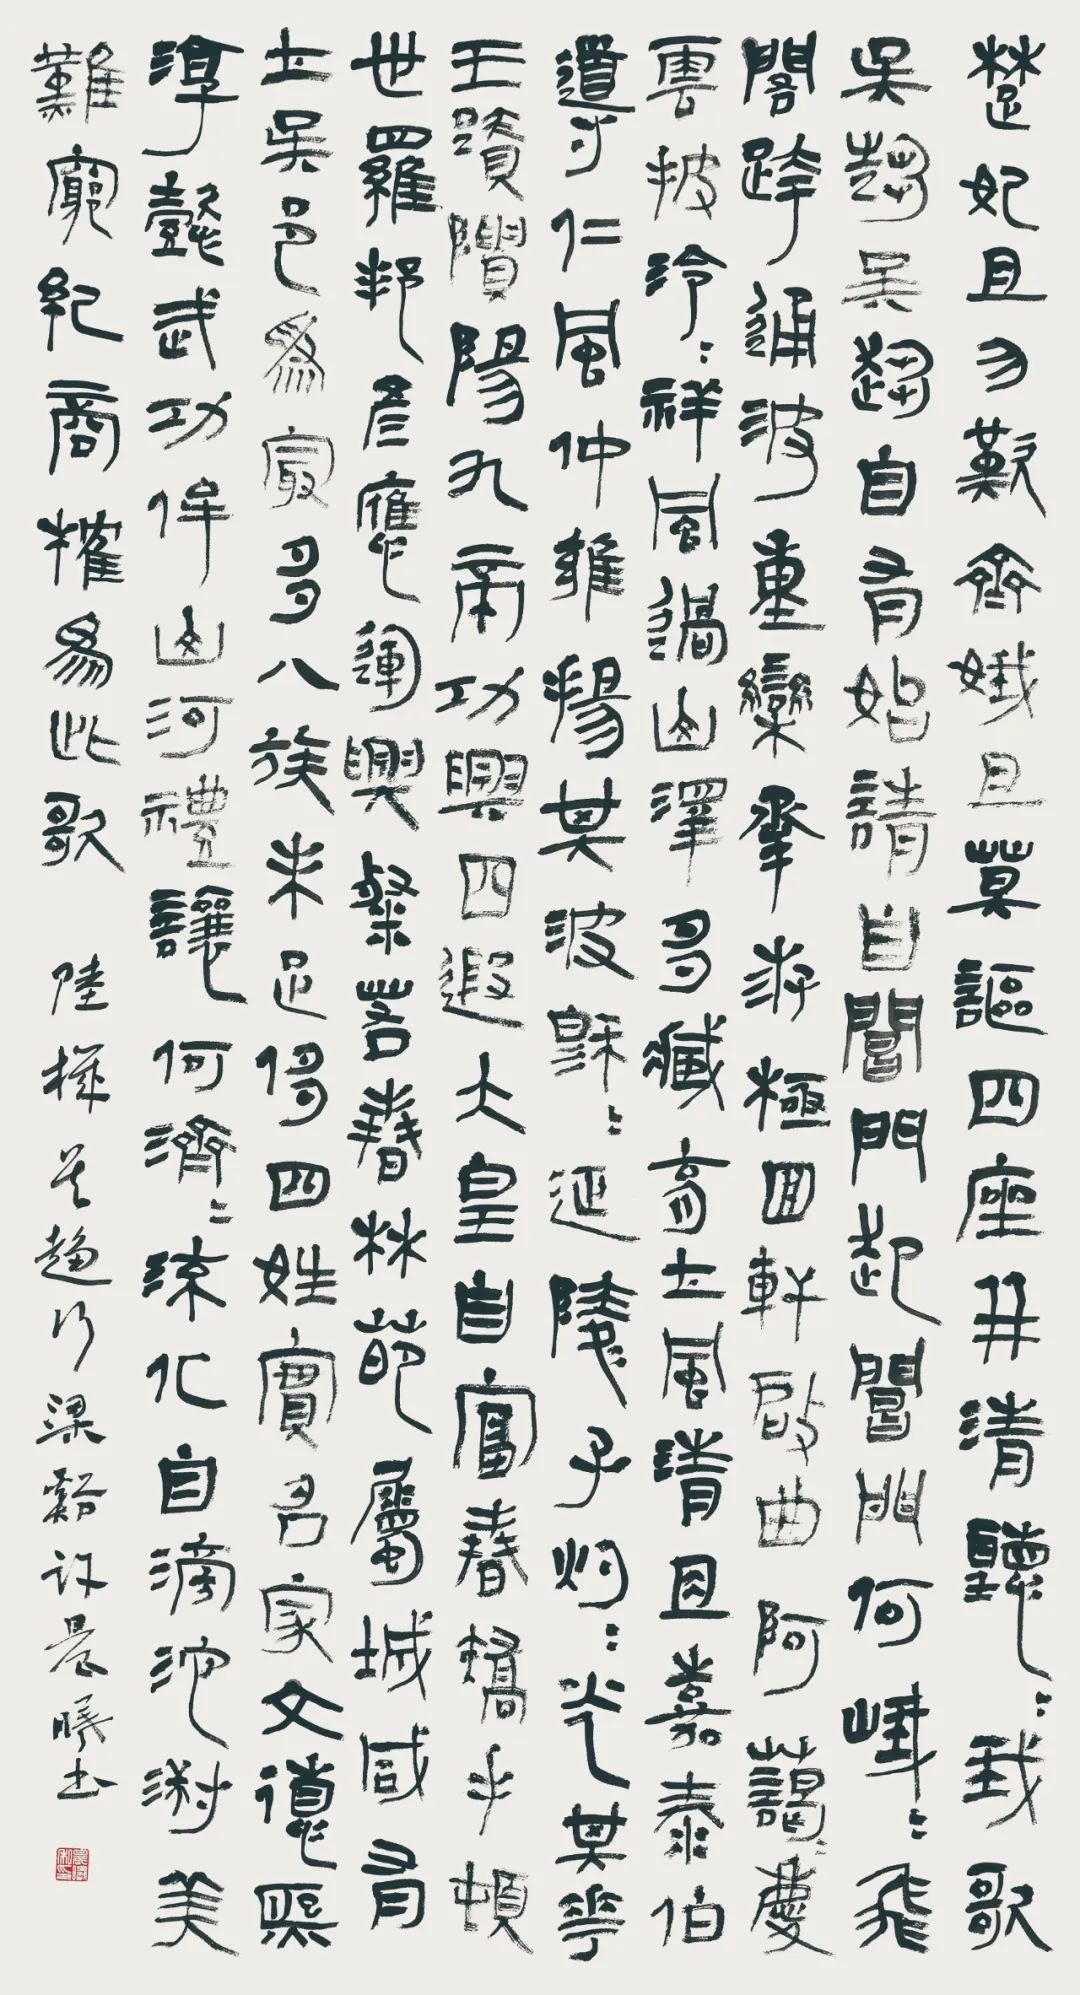 楚妃且勿歎齊娥且莫謳四座并清聽〻我歌
吳趨吳趨自有始請自閶門起閶門何峨〻飛
閣跨通波重欒承游極回軒啟曲阿藹〻慶
雲披泠〻祥風過山澤多藏育土風清且嘉泰伯
導仁風仲雍揚其波穆〻延陵子灼〻光其華
王蹟隤陽九帝功興四遐大皇自富春矯手頓
世羅邦彥應運興粲若春林葩屬城咸有
士吳邑爲最多八族未足侈四姓實名家文德熙
淳懿武功侔山河禮讓何濟〻流化自滂沱淑美
難窮紀商榷爲此歌 陸機吳趨行 梁谿許晨曦書